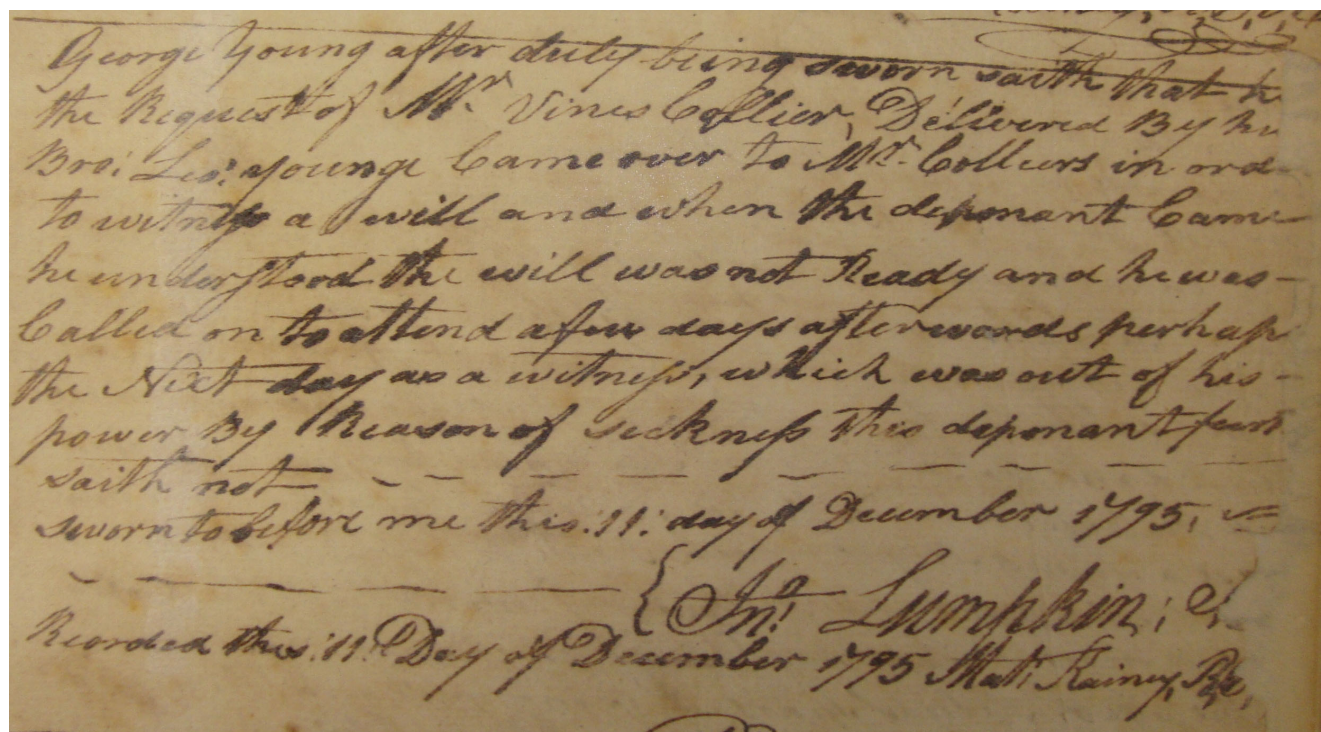 George Young after duly being sworn saith that he
the Request of Mr. Vines Collier, Delivered By hi
Bro: Leo: young Came over to Mr. Colliers in ord
to witness a will and when the deponant Came
he understood the will was not Ready and he was -
Called on to attend a few days afterwords perhaps
the Next day as a witness, which was out of his -
power By Reason of sickness this deponant furt
saith not
sworn to before me this :11: day of December 1795,
Jno. Lumpkin,
Recorded this :11: Day of December 1795 Mat: Rainey,